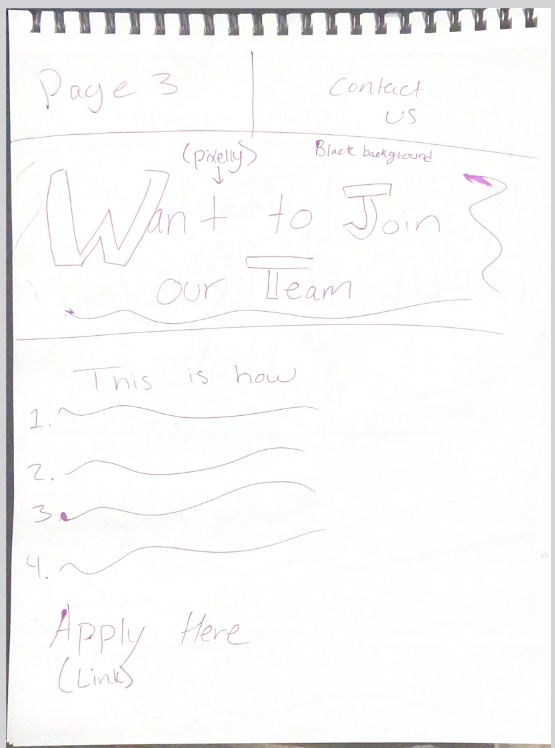 Page 3
Contact
us
(pixelly)
Black background
Want to Join
our Team
This is how
1.
2.
3.
4.
Apply Here
(Link)